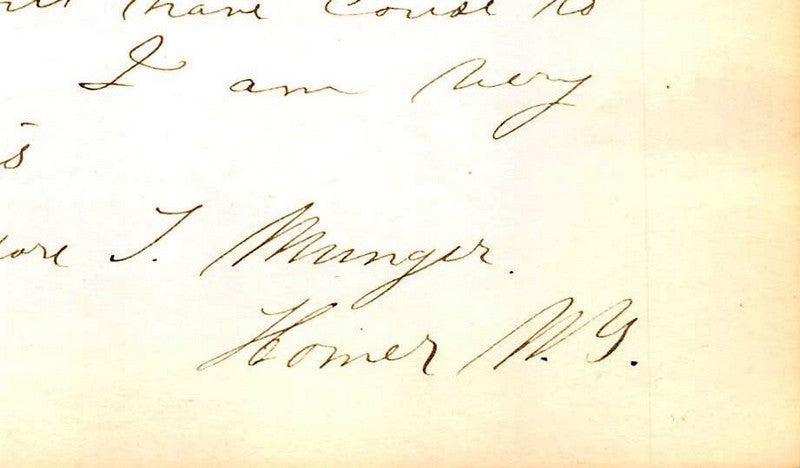 have cause to
I am very
s
ore T. Munger.
Homer N.Y.